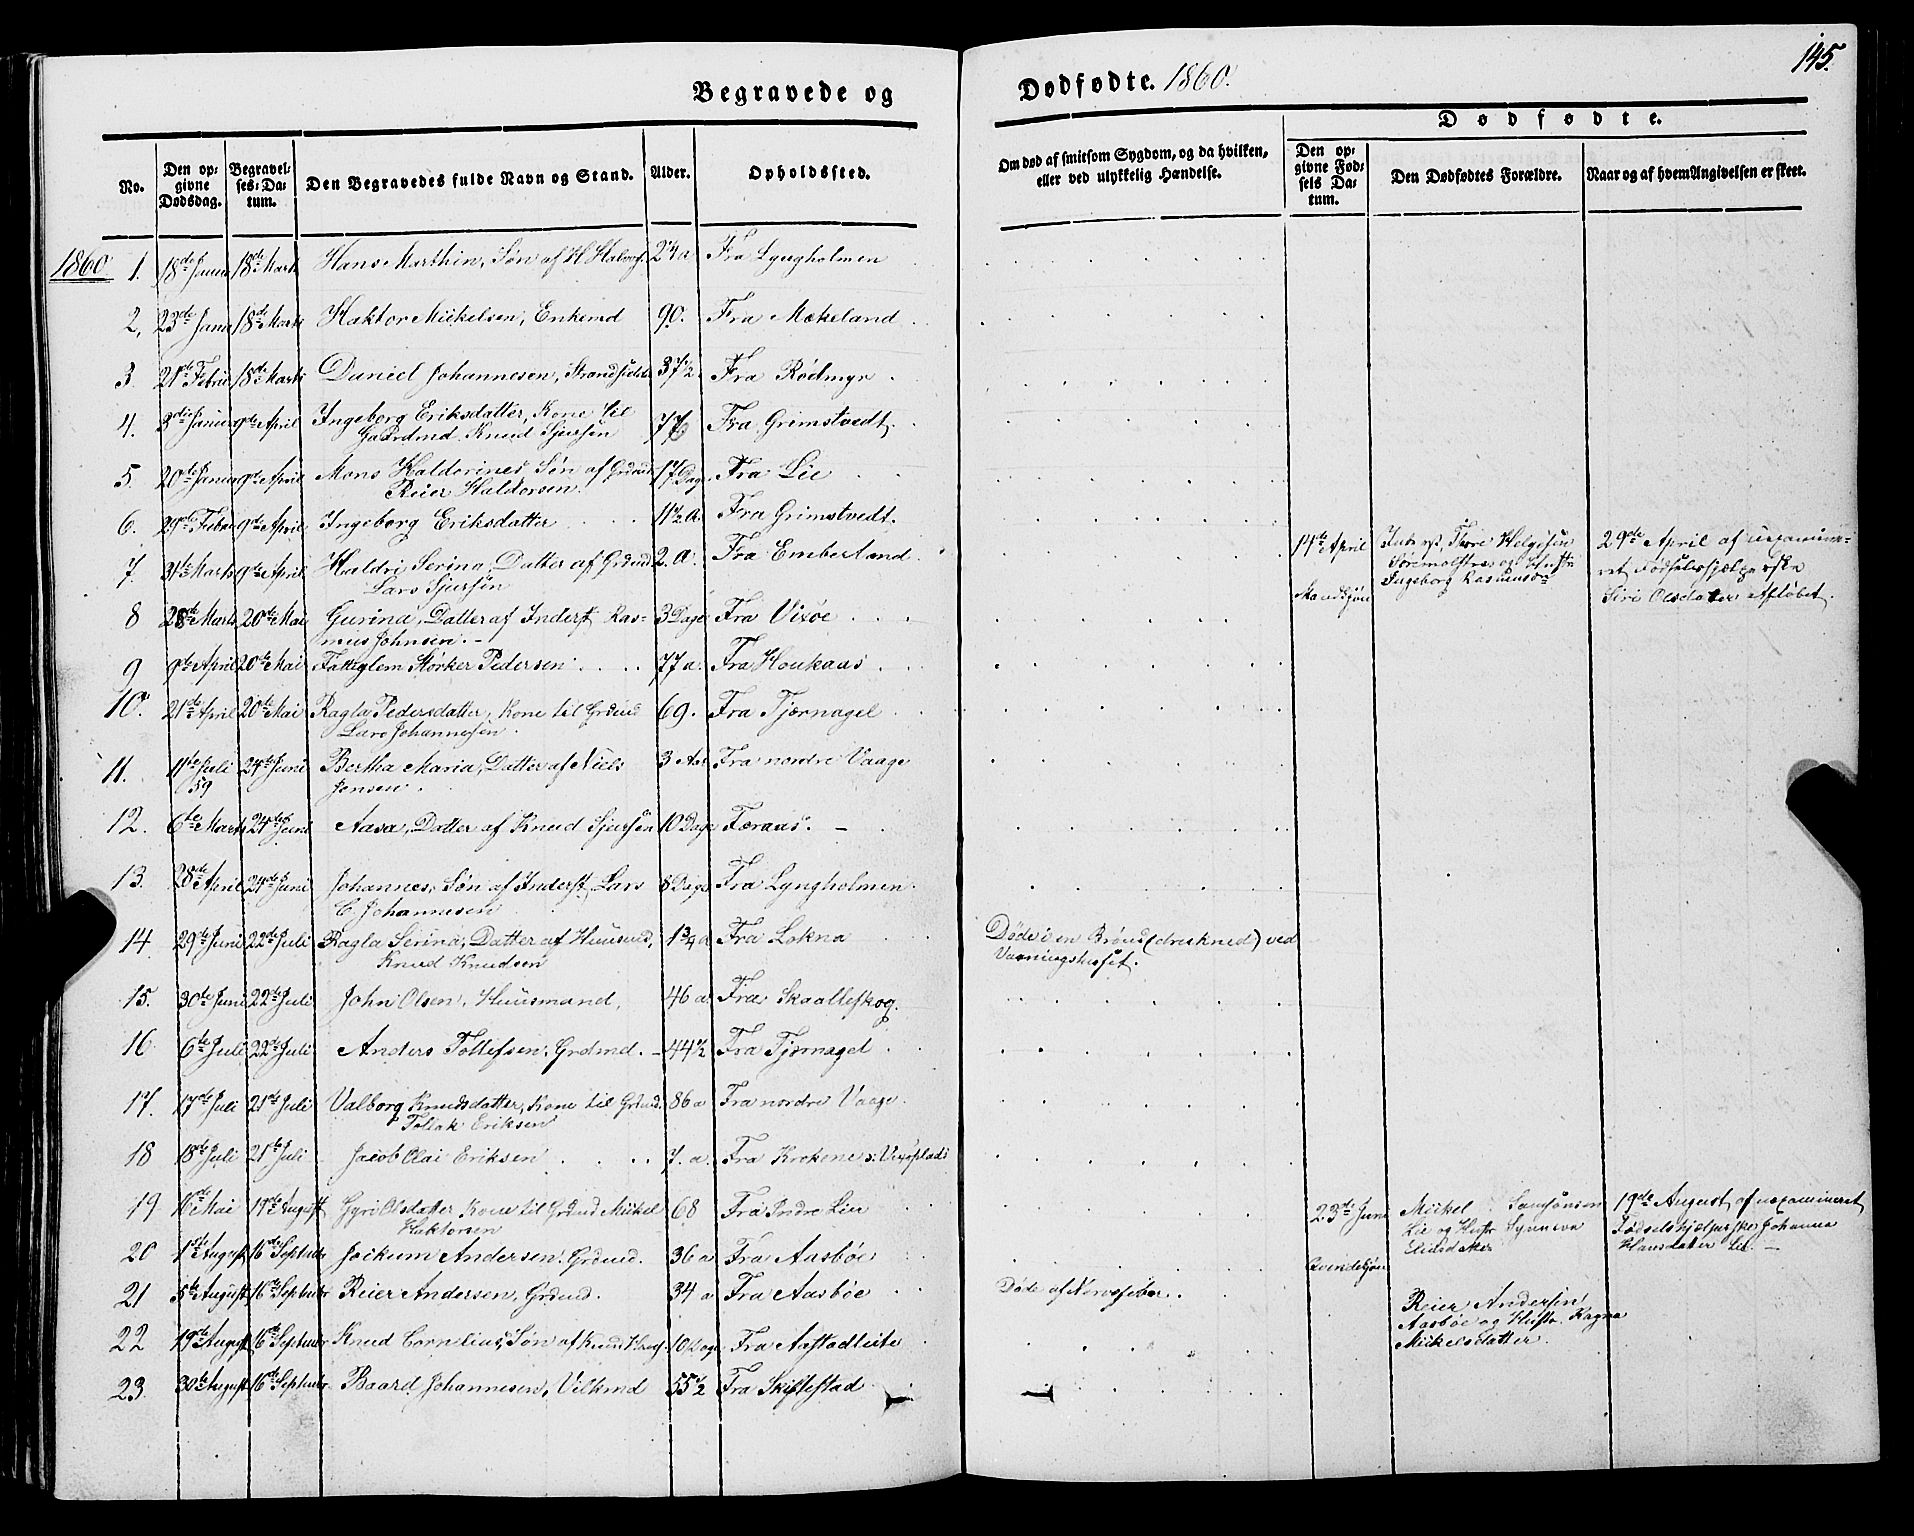 145.
Begravede og Dødfødte. 1860.
Dødfødte.
No.
Den opgivne Dødsdag.
Begravelses-Datum.
Den Begravedes fulde Navn og Stand.
Alder.
Opholdssted.
Om død af smitsom Sygdom, og da hvilken, eller ved ulykkelig Hændelse.
Den opgivne Fødsels Datum.
Den Dødfødtes Forældre.
Naar og af hvem Angivelsen er skeet.
1860
1. 18de Janu 18de Marts Hans Marthin, Søn af H. 2¼ a Fra Lyngholmen
2, 23de Janu 18de Marts Haktor Mickelsen, Enkemd 90. Fra Mækeland
3 21de Febru 18de Marts Daniel Johannesen, 37½ Fra Rødmyr
4. 3die Januar 9de April Ingeborg Eriksdatter, Kone til 76 Fra Grimstvedt
Gaardmd. Knud Sjursen
5. 20de Januar 9de April Mons Haldorines Søn af Grdmd 17 Dage Fra Lie
Reier Haldorsen
6. 29de Febru 9de April Ingeborg Eriksdatter 11½ a. Fra Grimstvedt.
7 31te Marts 9de April Haldri Serina, Datter af Grdmd 2. a. Fra Emberland
Lars Sjursen
14de April
Mandkjøn
Thore Helgesen
Ingeborg Rasmusen
29de April af uexamineret Fødselshjælperske
Siri Olsdatter Afløbet.
8 28de Marts 20de Mai Gurina, Datter af Inderst Ras- 3 Dage Fra Vixøe
mus Johnsen. -
9 9de April 20de Mai Fattiglem Størker Pedersen 77 a. Fra Houkaas
10. 21de April 20de Mai Ragla Pedersdatter, Kone til Grdmd 69. Fra Tjernagel
Lars Johannesen.
11. 11te Juli 59 24de Juni Bertha Maria, Datter af Niels 3 Aar Fra nordre Vaage
Jensen.
12. 6te Marts 24de Juni Aasa, Datter af Knud Sjursen 10 Dage Færaas. -
13. 28de April 24de Juni Johannes, Søn af Inderst Lars 8 Dage Fra Lyngholmen
C. Johannesen
14. 29de Juni 22de Juli Ragla Serina, Datter af Huusmd, 1¾ a Fra Lokna Døde i en Brønd (drukned) ved
Knud Knudsen Vaaningshuset.
15. 30te Juni 22de Juli John Olsen, Huusmand, 46 a. Fra Skaalleskog.
16 6te Juli 22de Juli Anders Tollefsen, Grdmd. - 44½ Fra Tjernagel
17. 17de Juli 21de Juli Valborg Knudsdatter, Kone til Grdmd. 86 a Fra nordre Vaage
Tollak Eriksen
18 18de Juli 21de Juli Jacob Olai Eriksen 7. a. Fra Krokene
19 16de Mai 19de August Gyri Olsdatter Kone til Grdmd Mickel 68 Fra Indre Lier
Haktorsen
23de Juni
Qvindekjøn
Mickel Samsonsen
Lie og Hustr Synneva
Eliasdatter
19de August af uexamineret
Fødselshjælperske Johanna
Hansdatter Lie. -
20 1ste August 16de Septmbr Jockum Andersen. Grdmd. 36 a Fra Aasbøe
21 5te August 16de Septmbr Reier Andersen, Grdmd. 34 a Fra Aasbøe Døde af Nervefeber.
Reier Andersen
Aasbøe og Hustr. Ragna
Mickelsdatter.
22 19de August 16de Septmbr Knud Cornelius, Søn af Knud 10 Dage Fra Aastadleite
23. 30te August 16de Septmbr Baard Johannesen, Vilkmd 55½ Fra Skiftestad